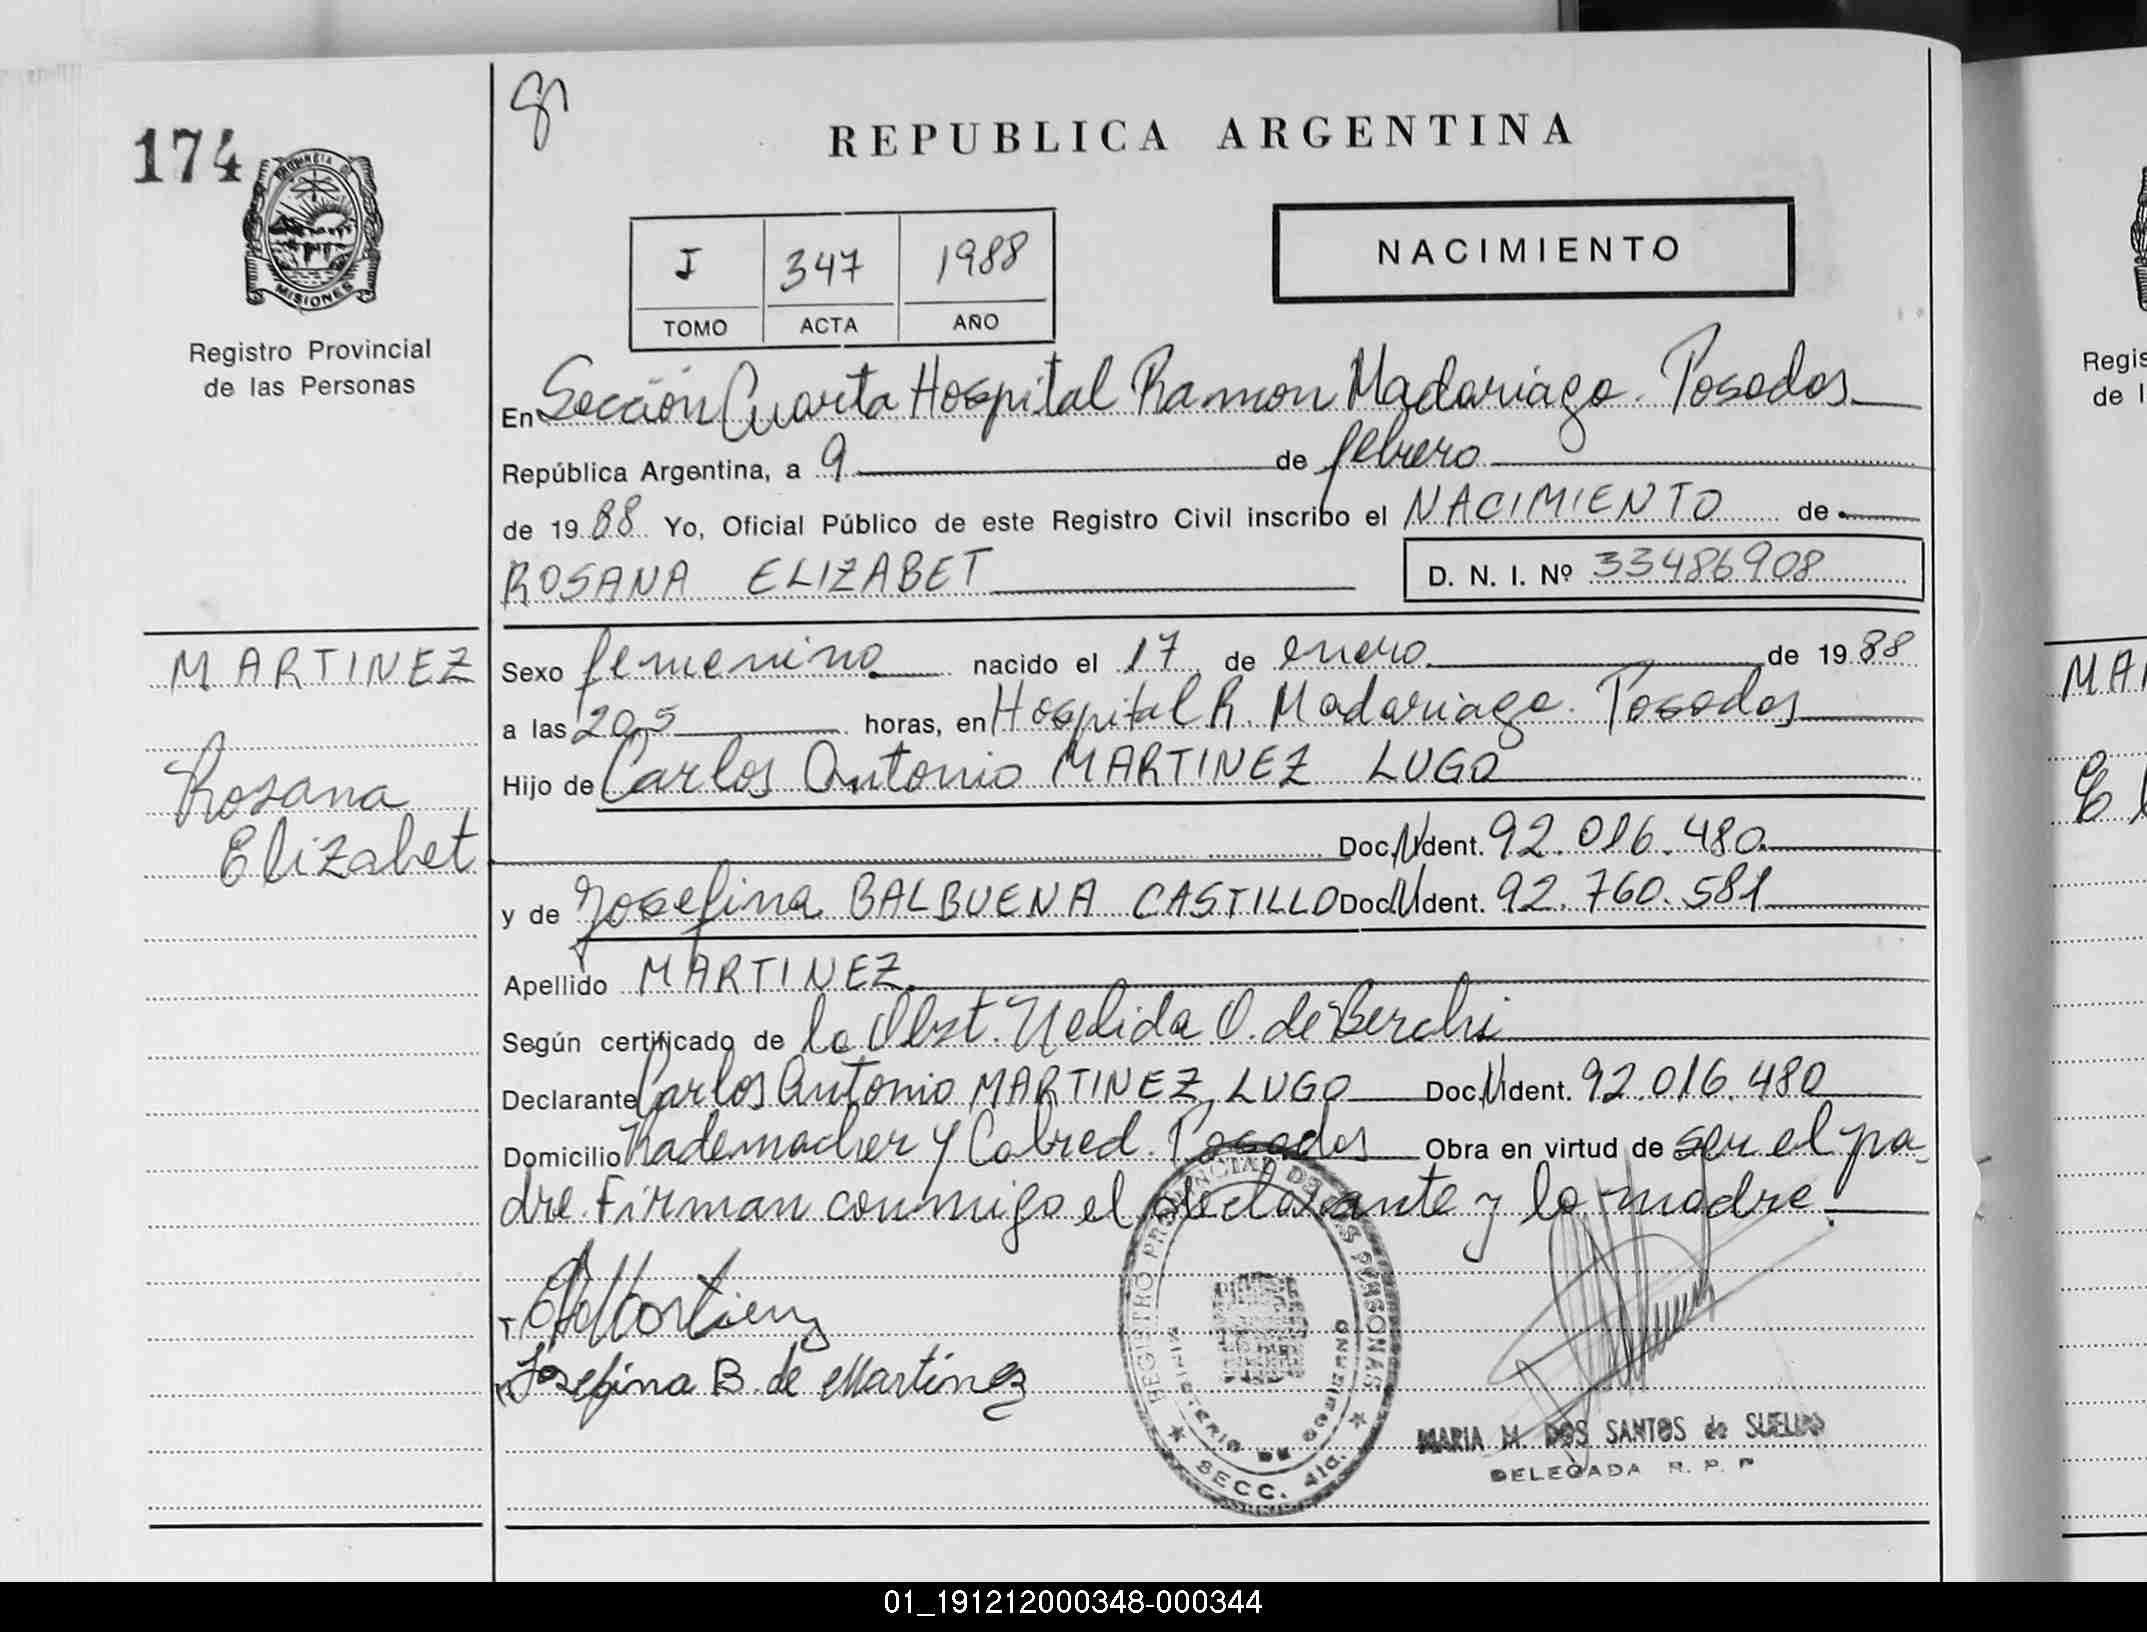 174
PROVINCIA DE
MISIONES
Registro Provincial
de las Personas
REPUBLICA ARGENTINA
I 347 1988
TOMO ACTA AÑO
NACIMIENTO
En Sección Cuarta Hospital Ramon Madariaga. Posadas
República Argentina, a 9 de febrero
de 1988 Yo, Oficial Público de este Registro Civil inscribo el NACIMIENTO de
ROSANA ELIZABET D. N. I. Nº 33486908
MARTINEZ
Rosana
Elizabet
Sexo femenino nacido el 17 de enero de 1988
a las 20,5 horas, en Hospital R. Madariaga. Posadas
Hijo de Carlos Antonio MARTINEZ LUGO
Doc. N Ident. 92.016.480
y de Josefina BALBUENA CASTILLO Doc. N Ident. 92.760.581
Apellido MARTINEZ
Según certificado de la Obst. Nelida O. de Berchi
Declarante Carlos Antonio MARTINEZ LUGO Doc. N Ident. 92.016.480
Domicilio Rademacher y Cabred. Posadas Obra en virtud de ser el pa-
dre. Firman conmigo el declarante y la madre.
Josefina B. de Martinez
REGISTRO PROVINCIAL DE LAS PERSONAS
MINISTERIO DE GOBIERNO
SECC. 4ta.
MARIA M. DOS SANTOS de
DELEGADA R. P. P
Regis
de l
MAR
01_191212000348-000344